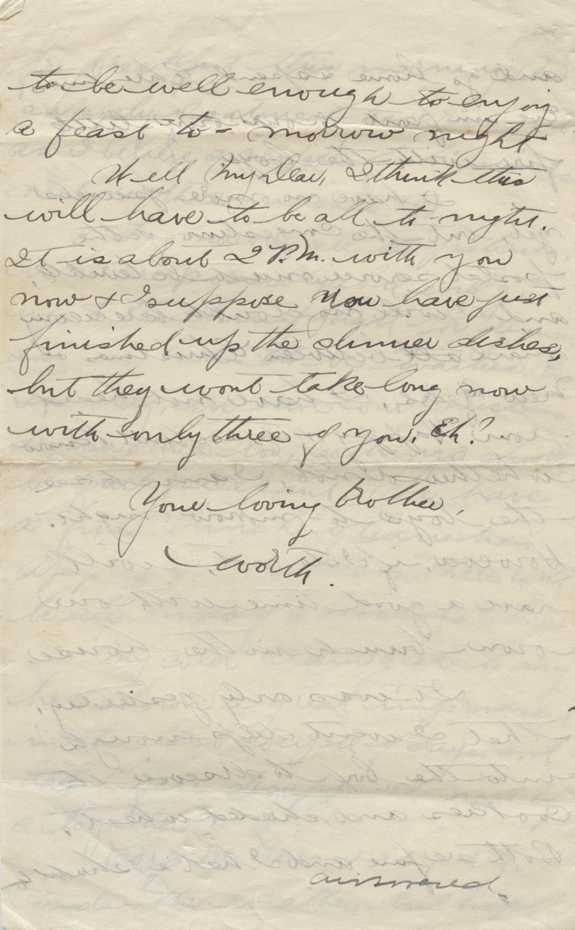 to be well enough to enjoy
a feast to-morrow night
Well my dear, I think this
will have to be all to night.
It is about 2 P.M. with you
now & I suppose you have just
finished up the dinner dishes,
but they wont take long now
with only three of you. Eh?
Your loving Brother,
Worth.
answered.